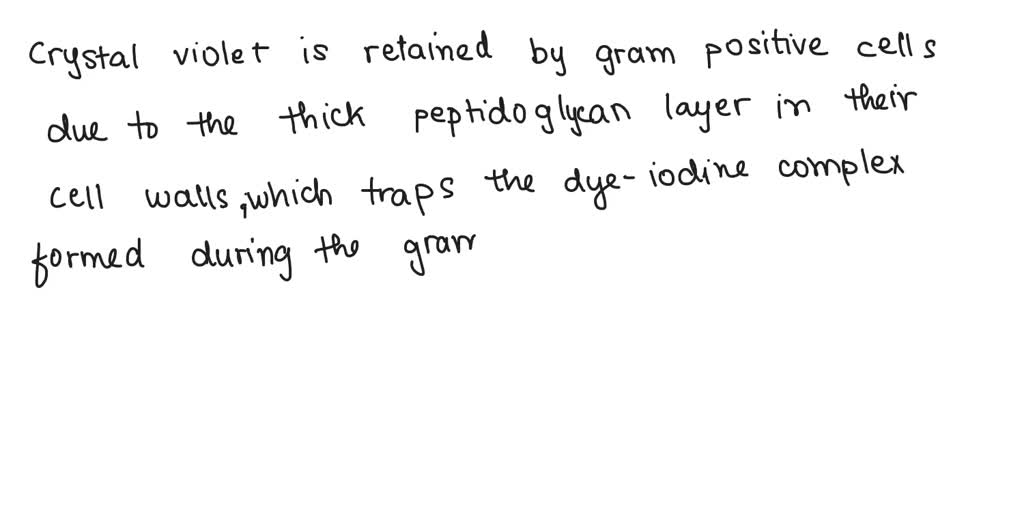 Crystal violet is retained by gram positive cells
due to the thick peptidoglycan layer in their
cell walls, which traps the dye-iodine complex
formed during the gram